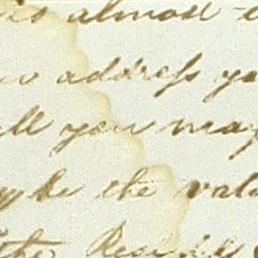 is almost
address yo
ll you may
y be the valu
the Resid